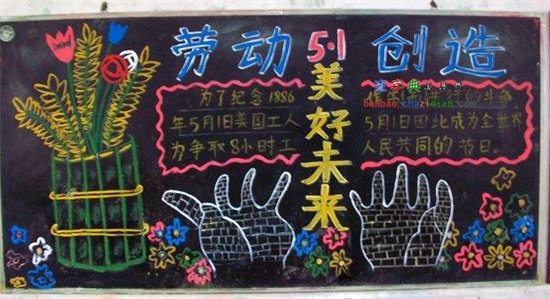 劳动 5·1 创造
美好未来
为了纪念1886
年5月1日美国工人
为争取8小时工
的斗争
5月1日由此成为全世界
人民共同的节日。
查字典
banbao.chazidian.com